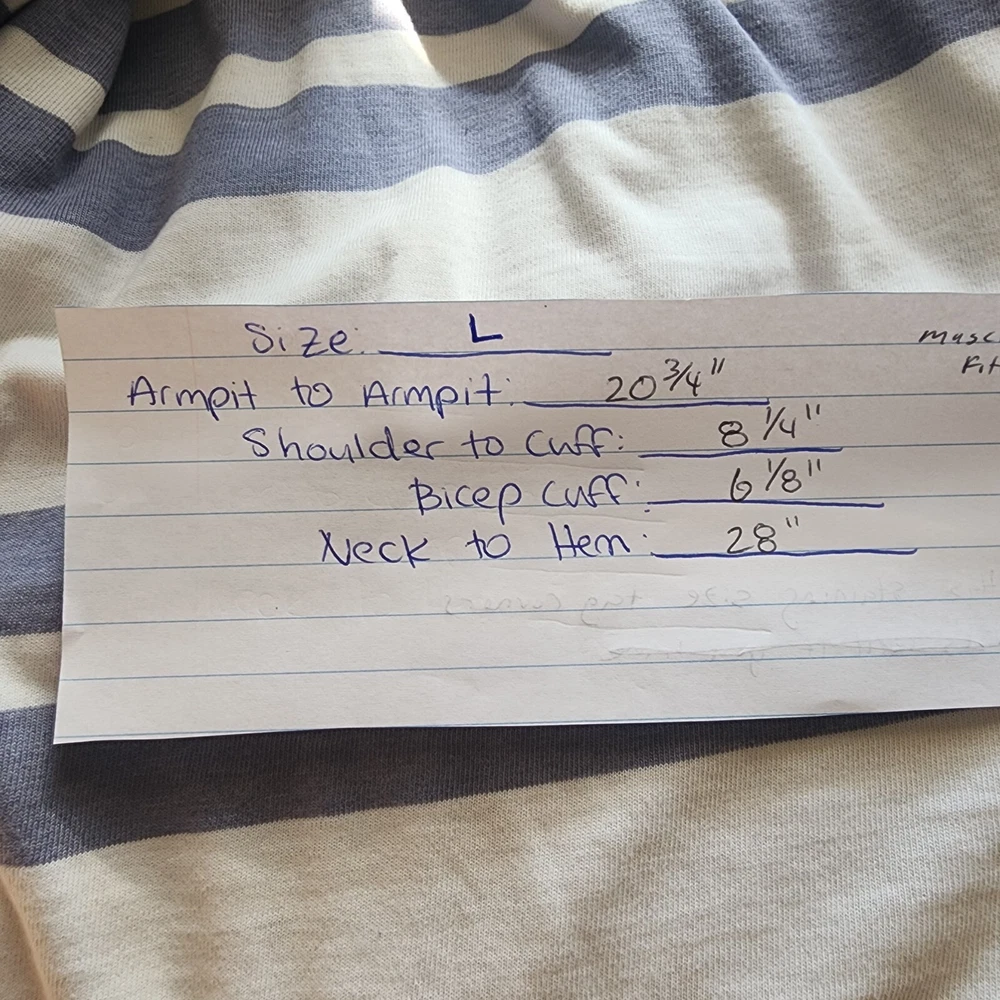 Size: L
Armpit to Armpit: 20 3/4"
Shoulder to Cuff: 8 1/4"
Bicep Cuff: 6 1/8"
Neck to Hem: 28"
size tag corners